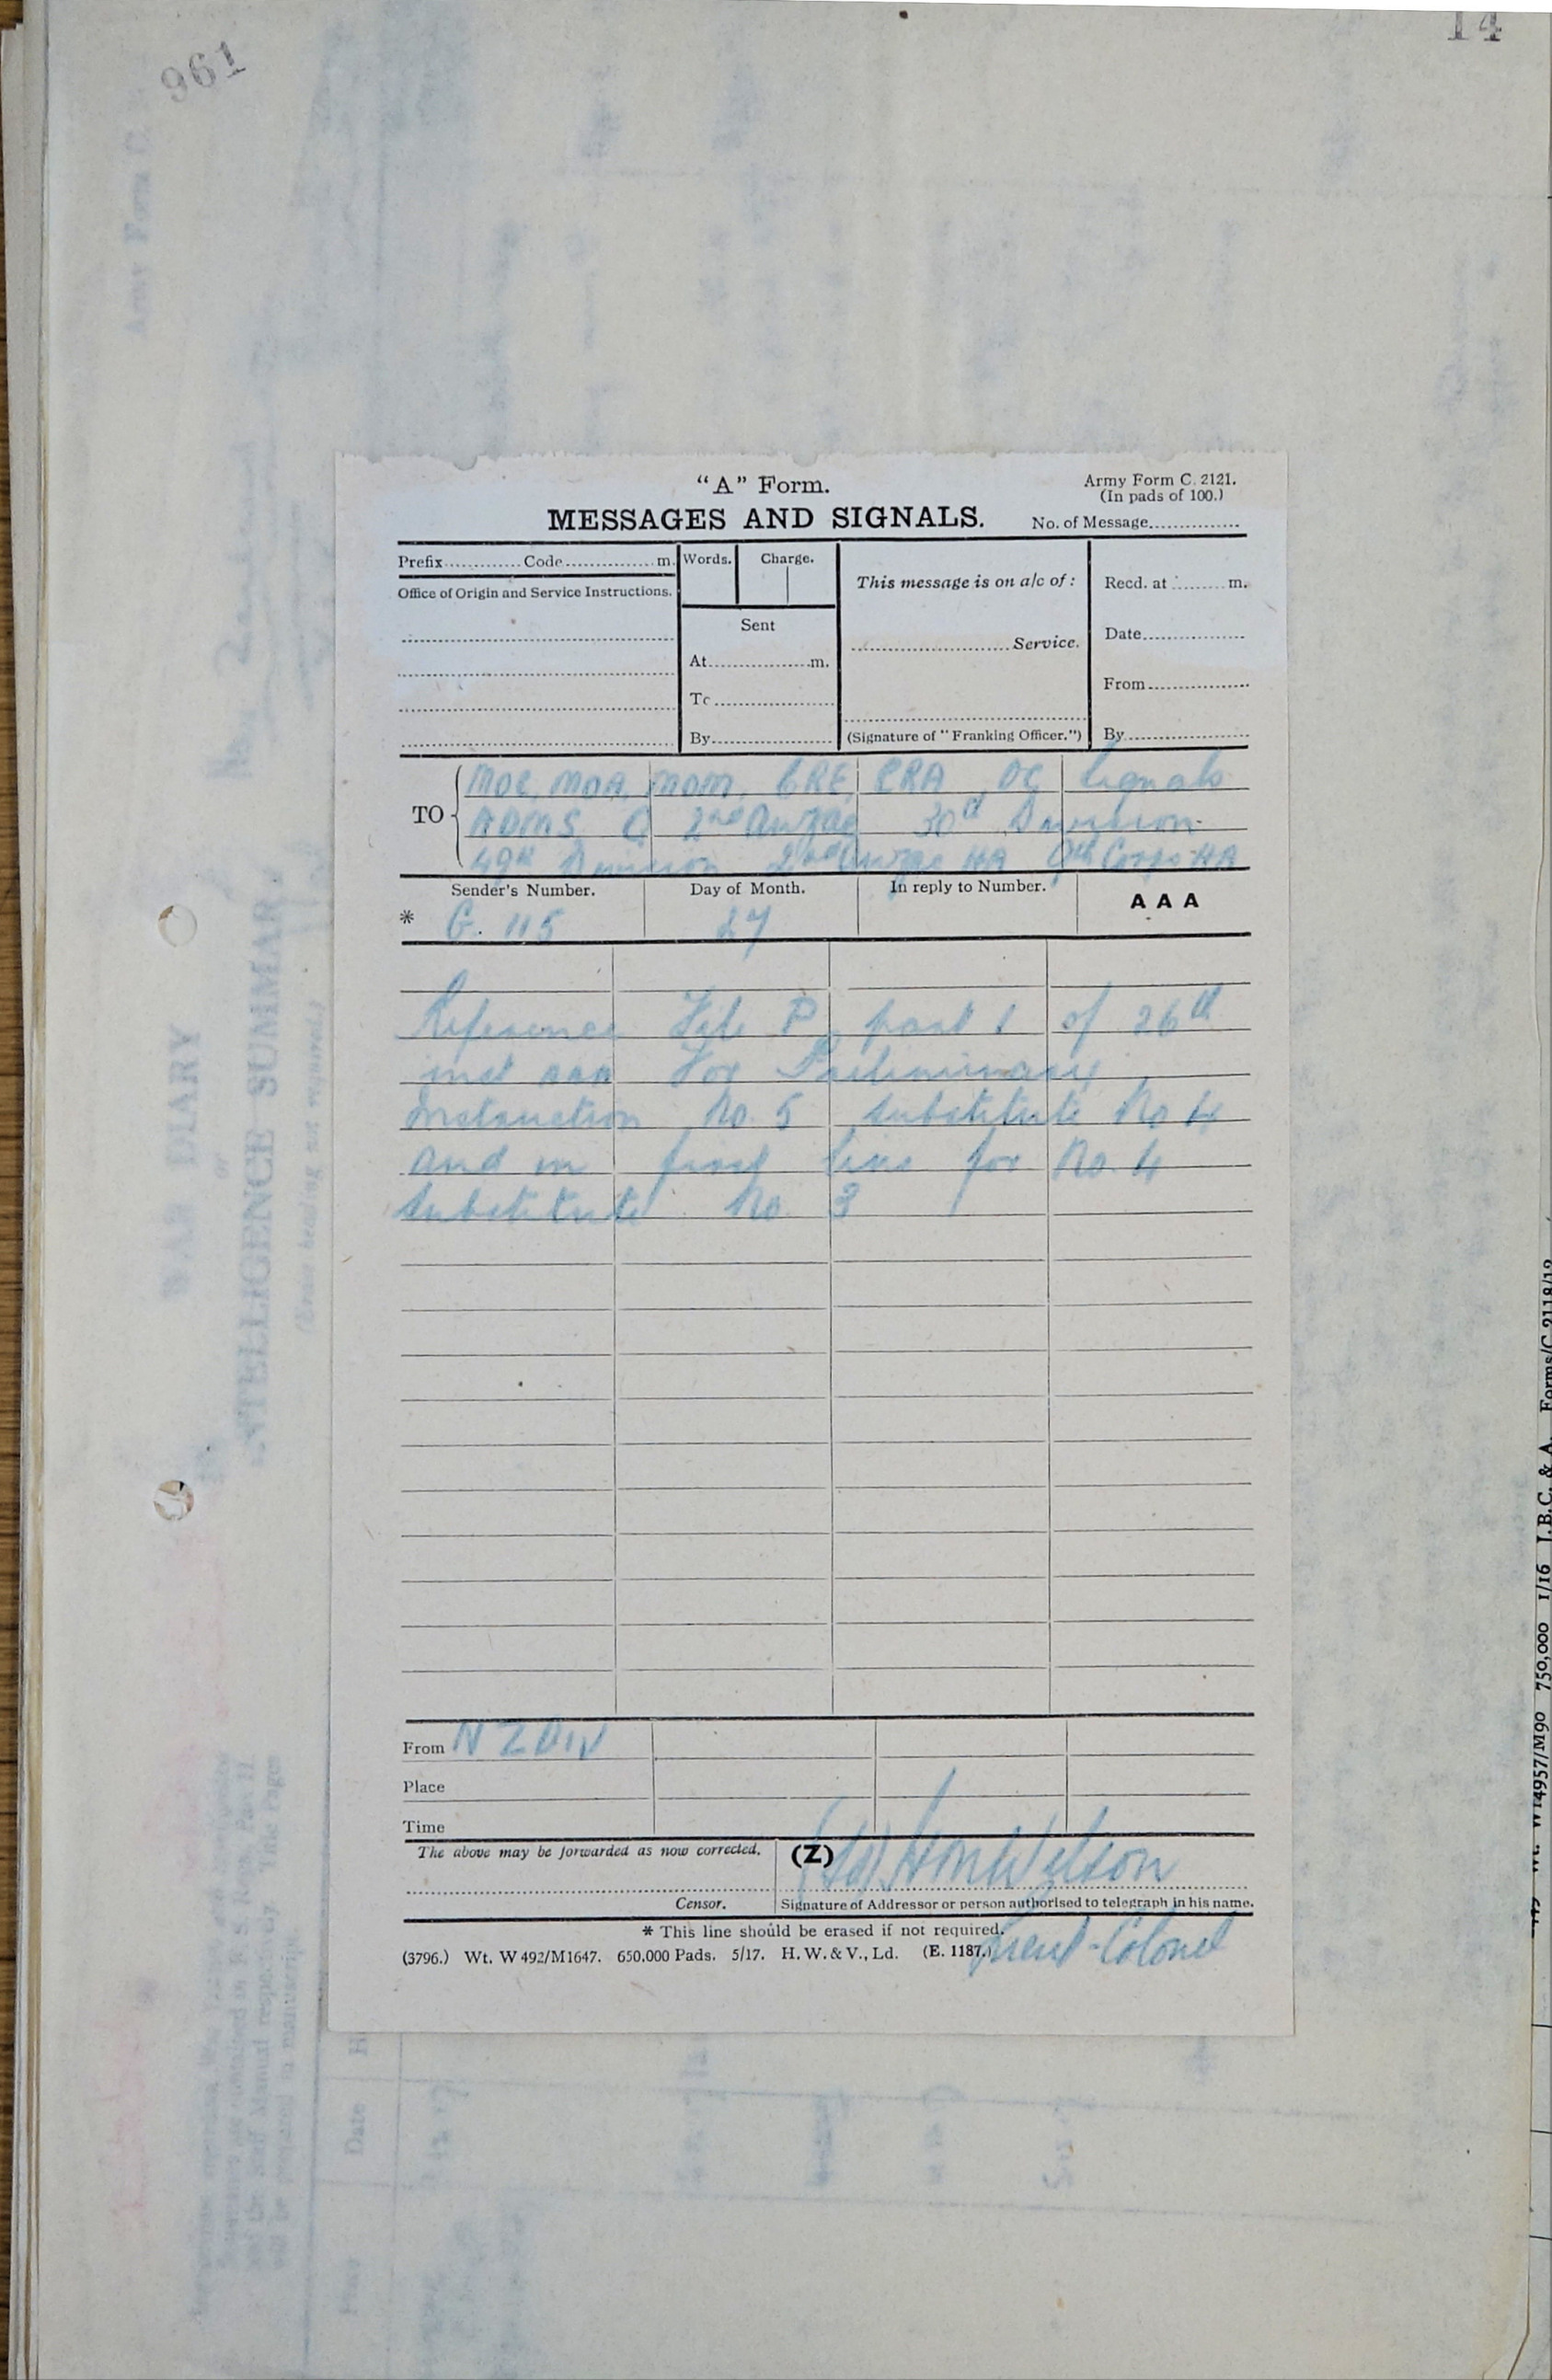 961
14
"A" Form.
Army Form C. 2121.
(In pads of 100.)
MESSAGES AND SIGNALS.
No. of Message...............
Prefix............. Code................m.
Words.
Charge.
This message is on a/c of :
Recd. at ......... m.
Office of Origin and Service Instructions.
Sent
Date.................
............................Service.
At..................m.
From.................
To....................
By....................
(Signature of "Franking Officer.")
By.....................
TO
MOE, MOA, MOM, CRE, CRA, OC Signals
ADMS Q 2nd Anzac 30th Division
49th Division 2nd Anzac HA 9th Corps HA
Sender's Number.
Day of Month.
In reply to Number.
AAA
*
G. 115
27
Reference File P, part 1 of 26th
inst aaa For Preliminary
Instruction No. 5 substitute No 4
and in line for No. 4
substitute No 3
From N Z Div
Place
Time
The above may be forwarded as now corrected.
(Z)
(Sd) Wilson
Censor.
Signature of Addressor or person authorised to telegraph in his name.
* This line should be erased if not required.
Lieut-Colonel
(3796.) Wt. W 492/M1647. 650,000 Pads. 5/17. H. W. & V., Ld. (E. 1187.)
WAR DIARY
or
INTELLIGENCE SUMMARY.
(Erase heading not required.)
Army Form C.
Date
Place
Wt. W14957/M90 750,000 1/16 J.B.C. & A. Forms/C.2118/12